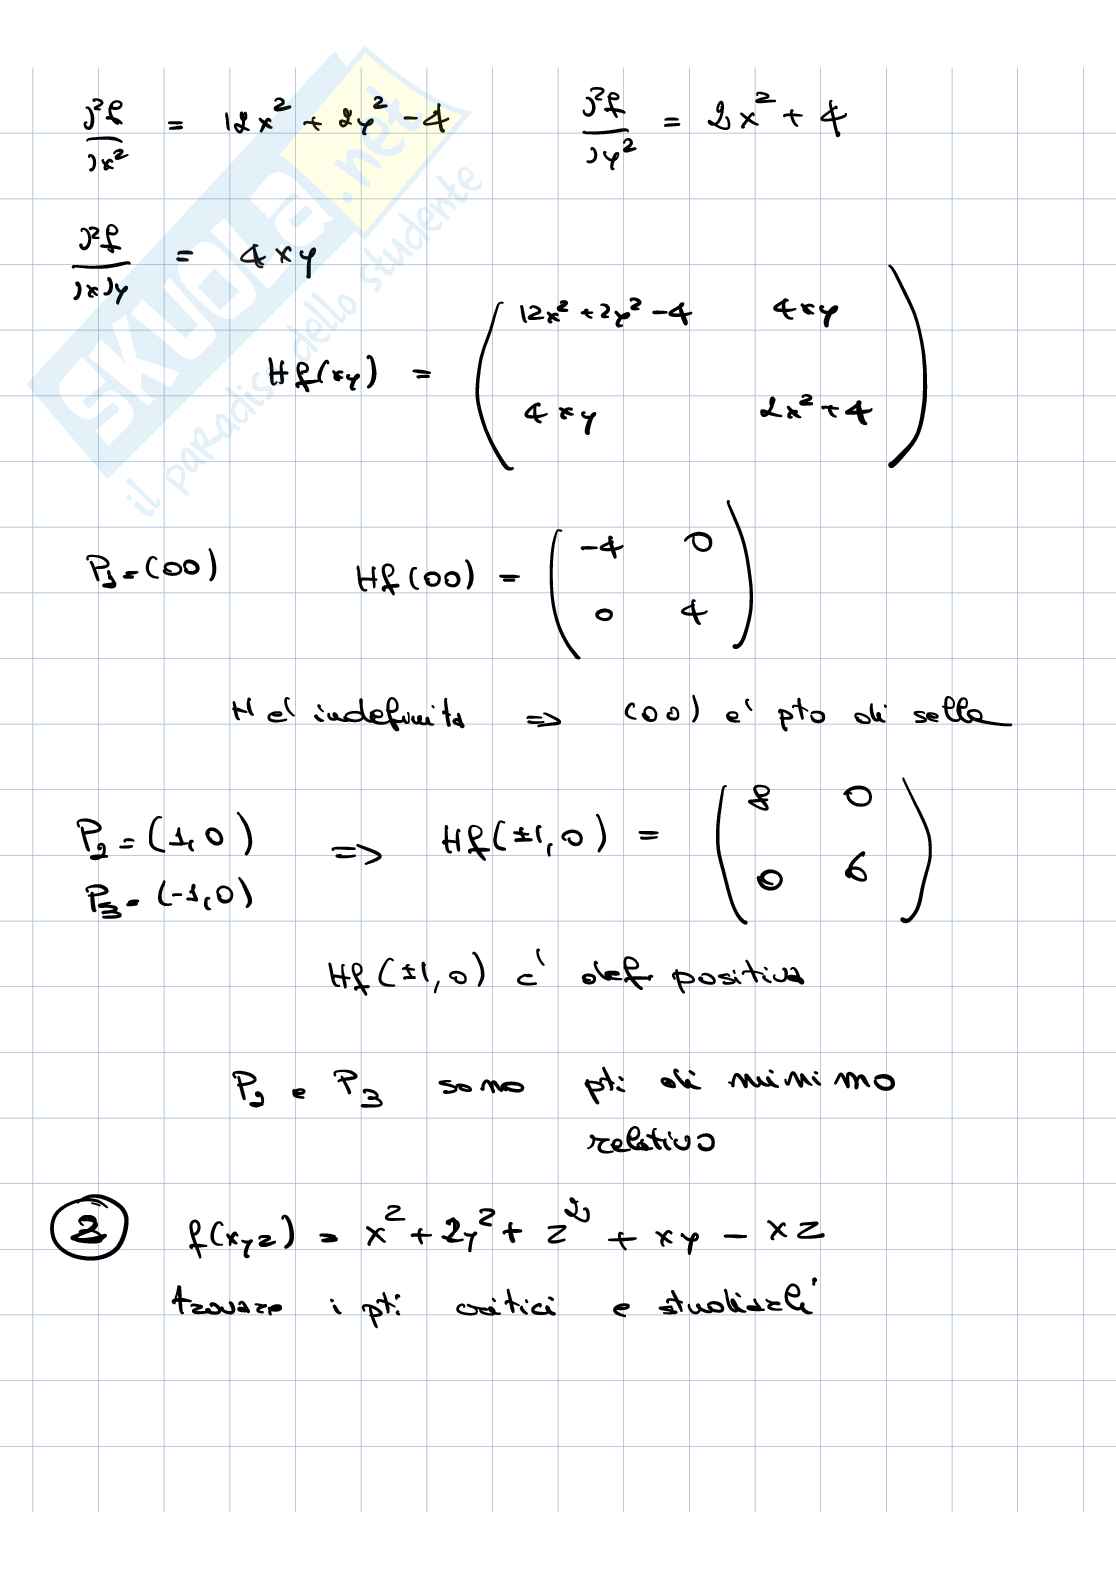 ∂²f/∂x² = 12x² + 2y² - 4    ∂²f/∂y² = 2x² + 4
∂²f/∂x∂y = 4xy
Hf(xy) = ( 12x² + 2y² - 4    4xy
4xy    2x² + 4 )
P₁ = (00)    Hf(00) = ( -4    0
0    4 )
H e' indefinita => (00) e' pto di sella
P₂ = (1,0)    => Hf(±1,0) = ( 8    0
P₃ = (-1,0)    0    6 )
Hf(±1,0) e' def. positiva
P₂ e P₃ sono pti di minimo
relativo
② f(xyz) = x² + 2y² + z² + xy - xz
trovare i pti critici e studiarli
SKUOLA.net
il paradiso dello studente